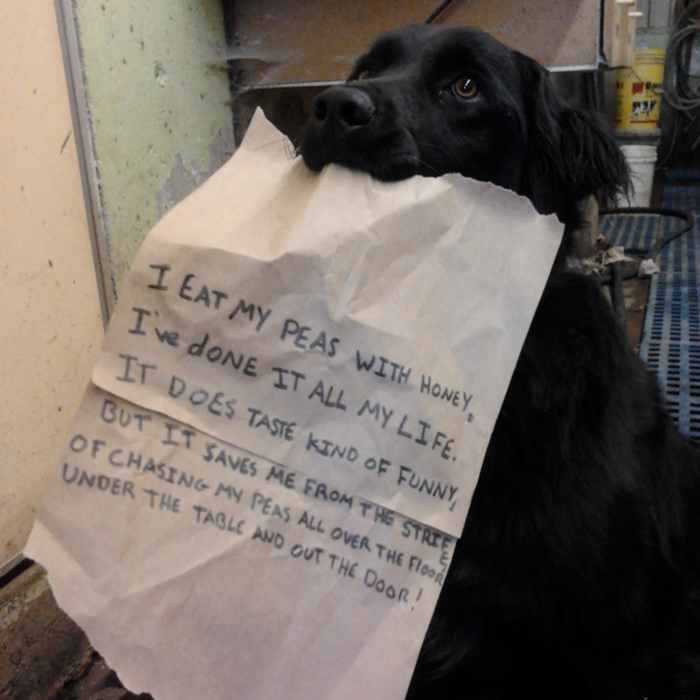 I EAT MY PEAS WITH HONEY,
I've dONE IT ALL MY LIFE.
IT DOES TASTE KIND OF FUNNY,
BUT IT SAVES ME FROM THE STRIFE
OF CHASING MY PEAS ALL OVER THE FlOOR,
UNDER THE TABLE AND OUT THE DOOR!